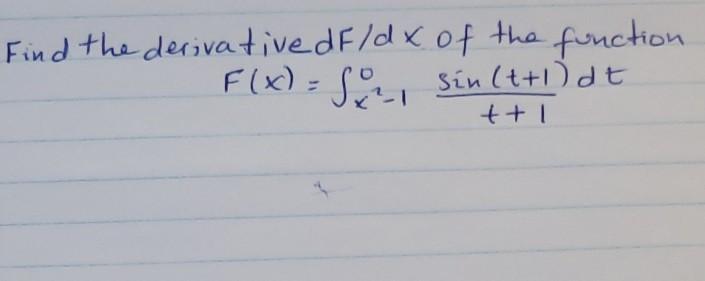 Find the derivative dF/dx of the function
F(x) = ∫_{x²-1}^{0} \frac{sin(t+1)dt}{t+1}